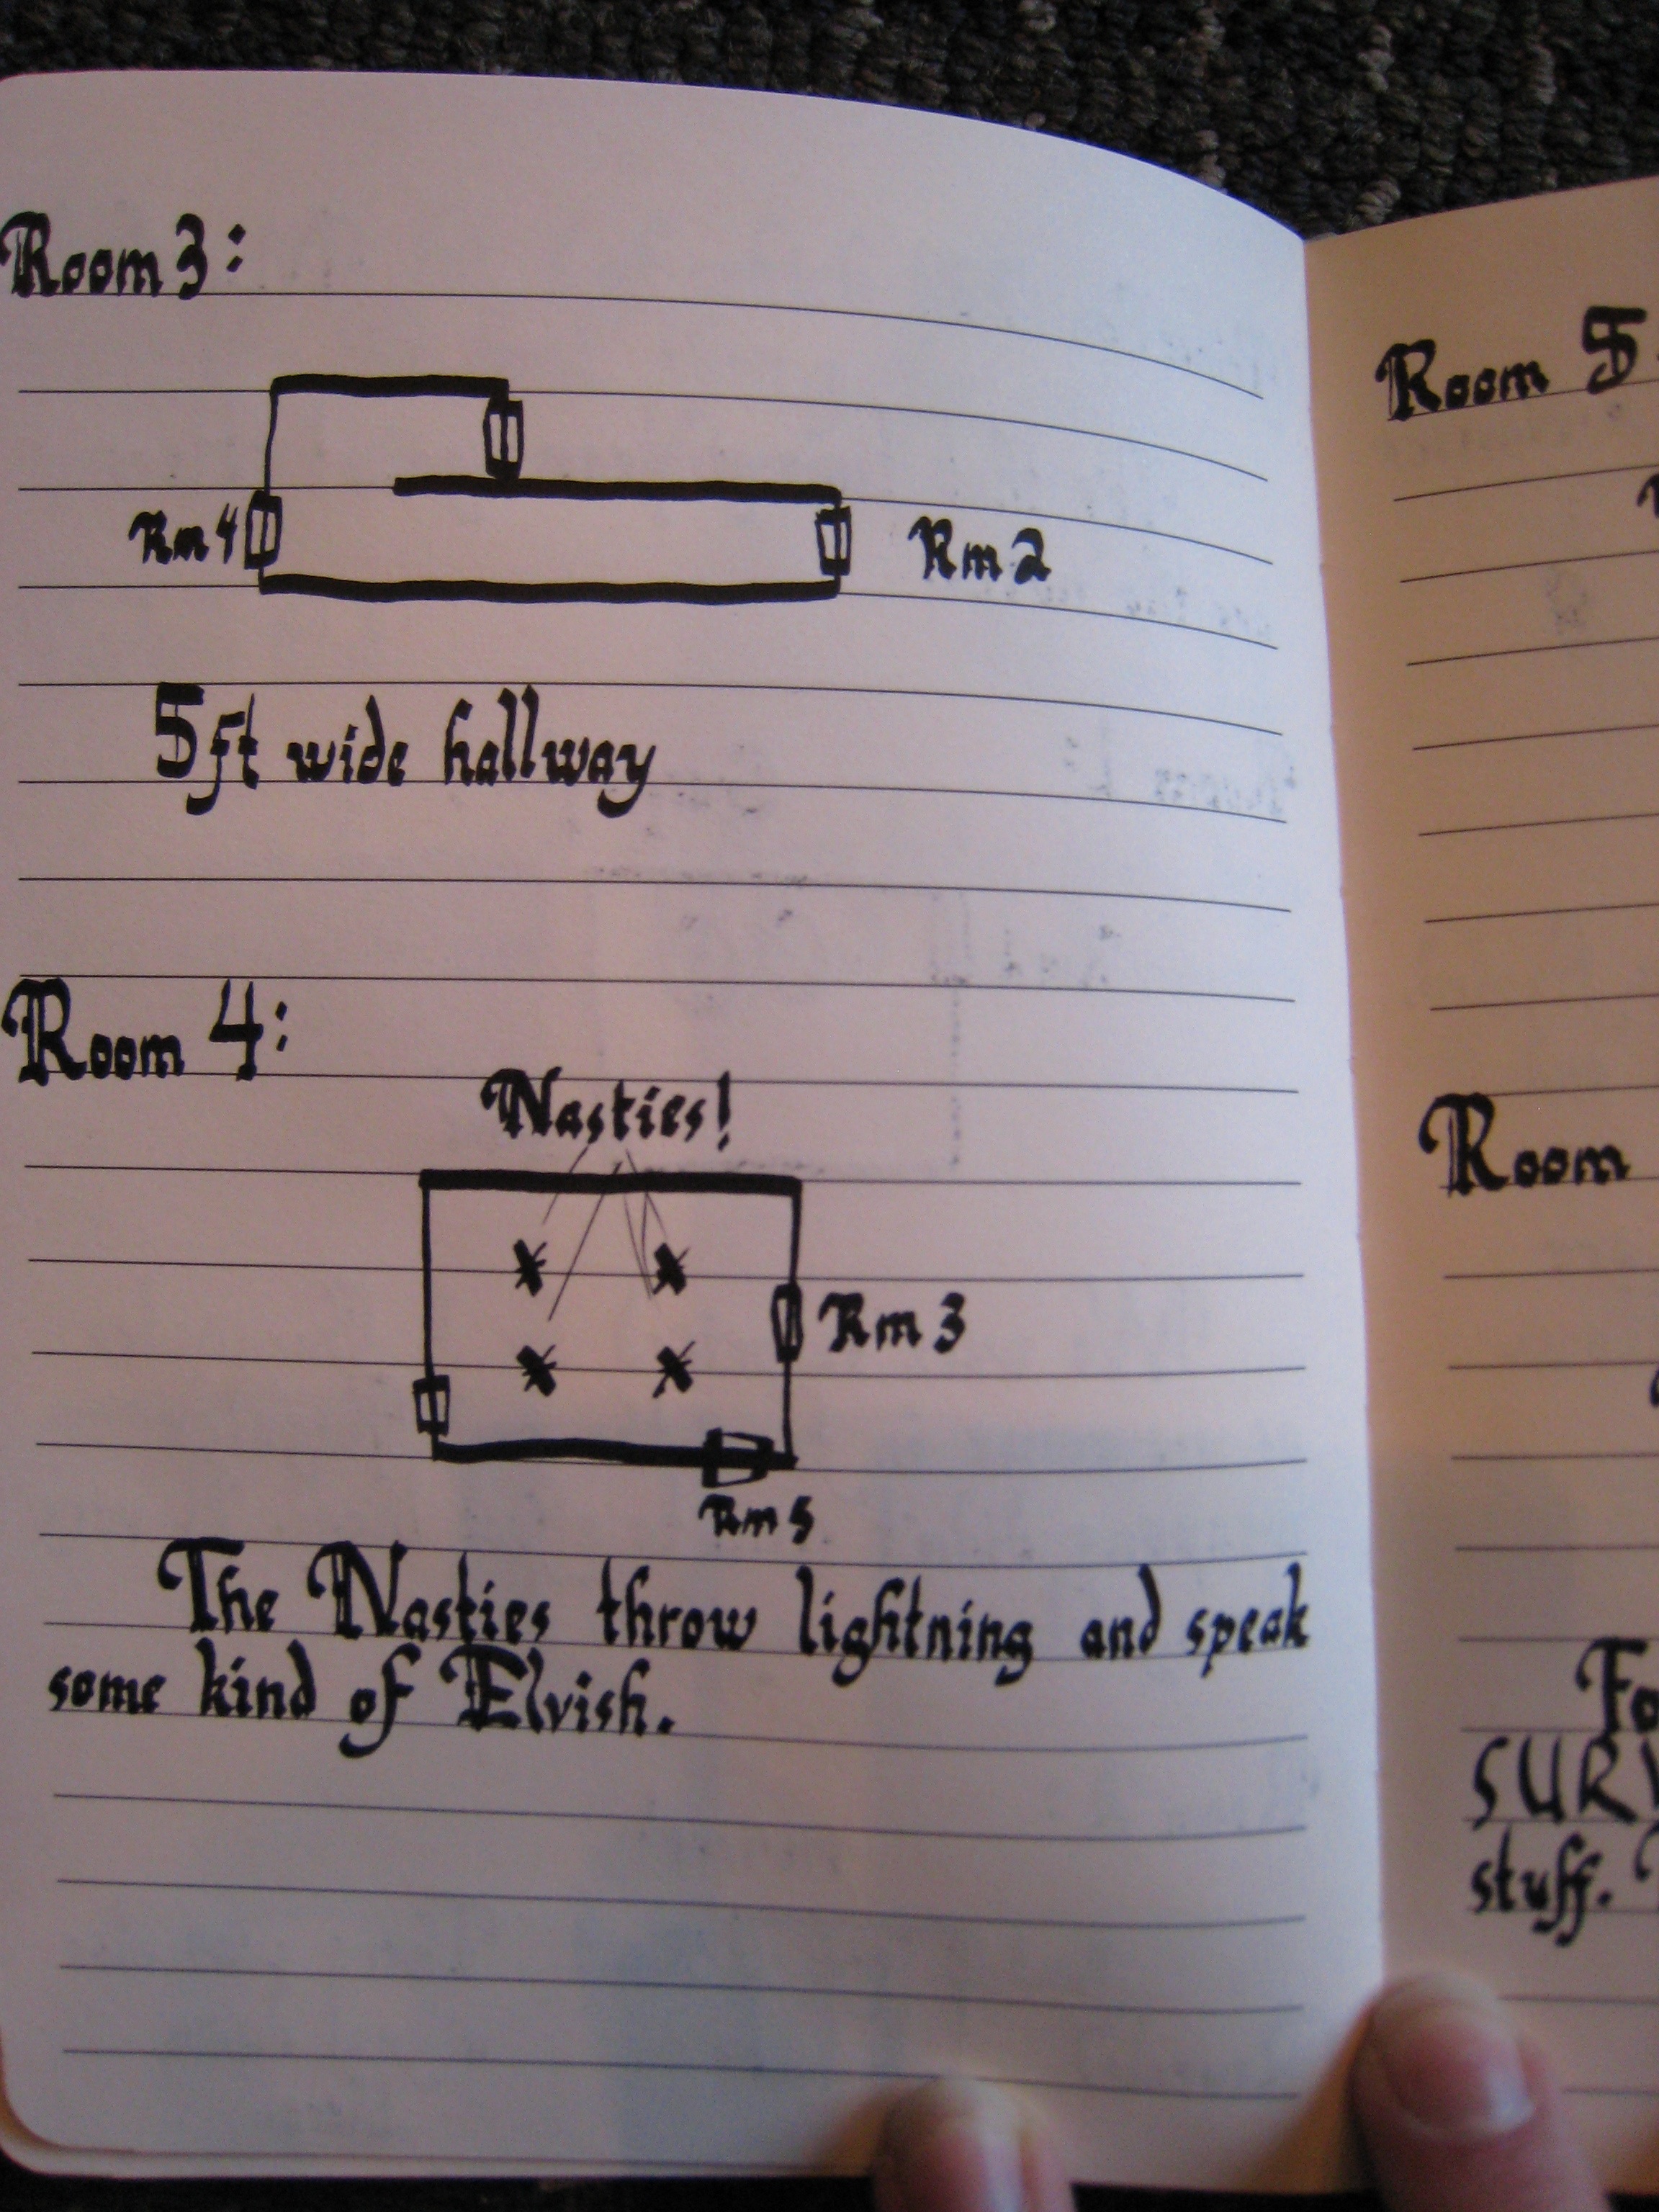 Room 3:
Rm 4
Rm 2
5ft wide hallway
Room 4:
Nasties!
Rm 3
Rm 5
The Nasties throw lightning and speak
some kind of Elvish.
Room 5
Room
Fo
SURV
stuff.